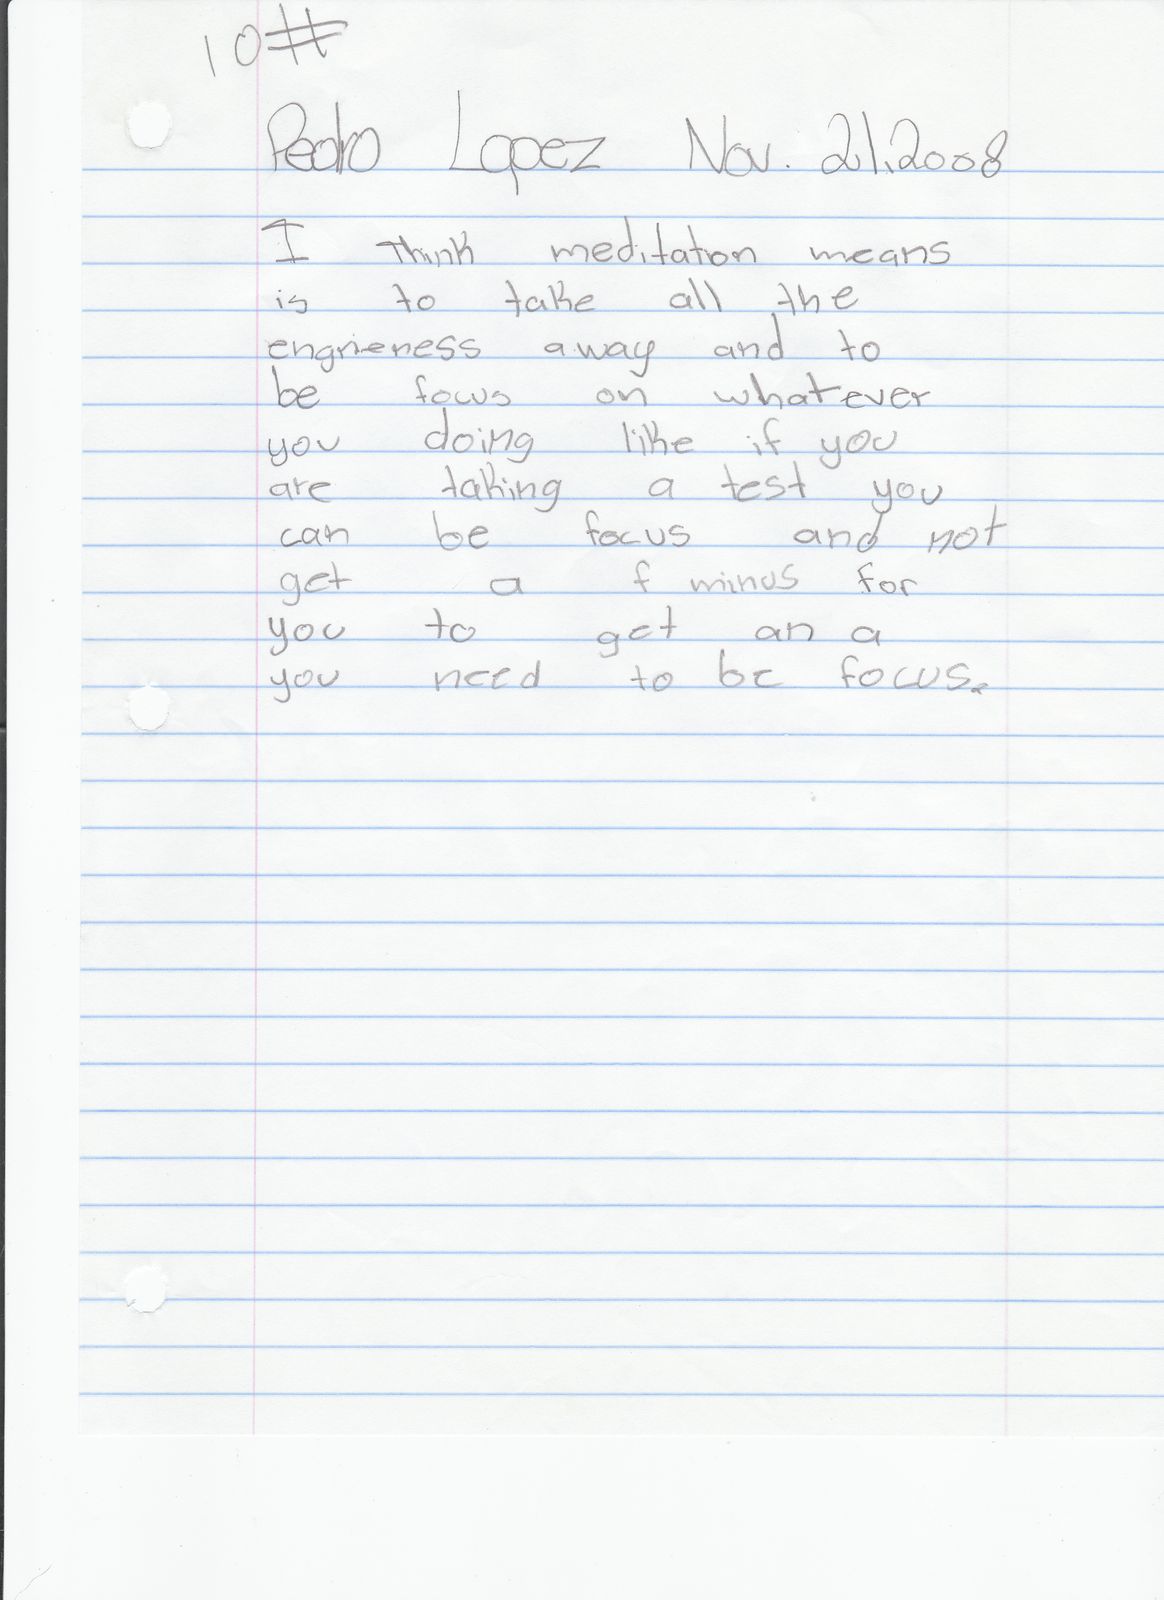 10#
Pedro Lopez Nov. 21.2008
I Think meditation means
is to take all the
engrieness away and to
be focus on whatever
you doing like if you
are taking a test you
can be focus and not
get a f minus for
you to get an a
you need to be focus.